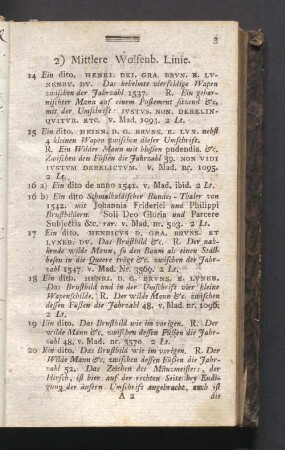 3
2) Mittlere Wolfenb. Linie.
14 Ein dito. HENRI. DEI. GRA. BRVN. E. LV-
NENBV. DV. Das behelmte vierfeldige Wapen
zwischen der Jahrzahl 1537. R. Ein gehar-
nischter Mann auf einem Postement sitzend &c.
mit der Umschrift: IVSTVS. NON. DERELIN-
QVITVR. ETC. v. Mad. 1093. 2 Lt.
15 Ein dito. HEINR. D. G. BRVNS. E. LVN. nebst
4 kleinen Wapen zwischen dieser Umschrift.
R. Ein Wilder Mann mit blossen pudendis, &c.
Zwischen den Füßen die Jahrzahl 39. NON VIDI
IVSTVM DERELICTVM. v. Mad. nr. 1095.
2 Lt.
16 a) Ein dito de anno 1541. v. Mad. ibid. 2 Lt.
16 b) Ein dito Schmalkaldischer Bundes-Thaler von
1542. mit Johannis Friderici und Philippi
Brustbildern. Soli Deo Gloria und Parcere
Subjectis &c. rar. v. Mad. nr. 503. 2 Lt.
17 Ein dito. HENRICVS D. GRA. BRVNS. ET
LVNEB. DV. Das Brustbild &c. R. Der na-
kende wilde Mann, so den Baum als einen Stab
besen in die Queere trägt &c. zwischen der Jahr-
zahl 1547. v. Mad. Nr. 3569. 2 Lt.
18 Ein dito. HENRI. D. G. BRVNS. E. LVNEB.
Das Brustbild und in der Umschrift vier kleine
Wapenschilde. R. Der wilde Mann &c. zwischen
dessen Füßen die Jahrzahl 48. v. Mad. nr. 1096.
2 Lt.
19 Ein dito. Das Brustbild wie im vorigen. R. Der
wilde Mann &c. zwischen dessen Füßen die Jahr-
zahl 48. v. Mad. nr. 3570. 2 Lt.
20 Ein dito. Das Brustbild wie im vorigen. R. Der
Wilde Mann &c. zwischen dessen Füßen die Jahr-
zahl 52. Das Zeichen des Münzmeister: der
Hirsch, ist hier auf der rechten Seite bey Endi-
gung der äusern Umschrift angebracht, auch ist
A 2 die